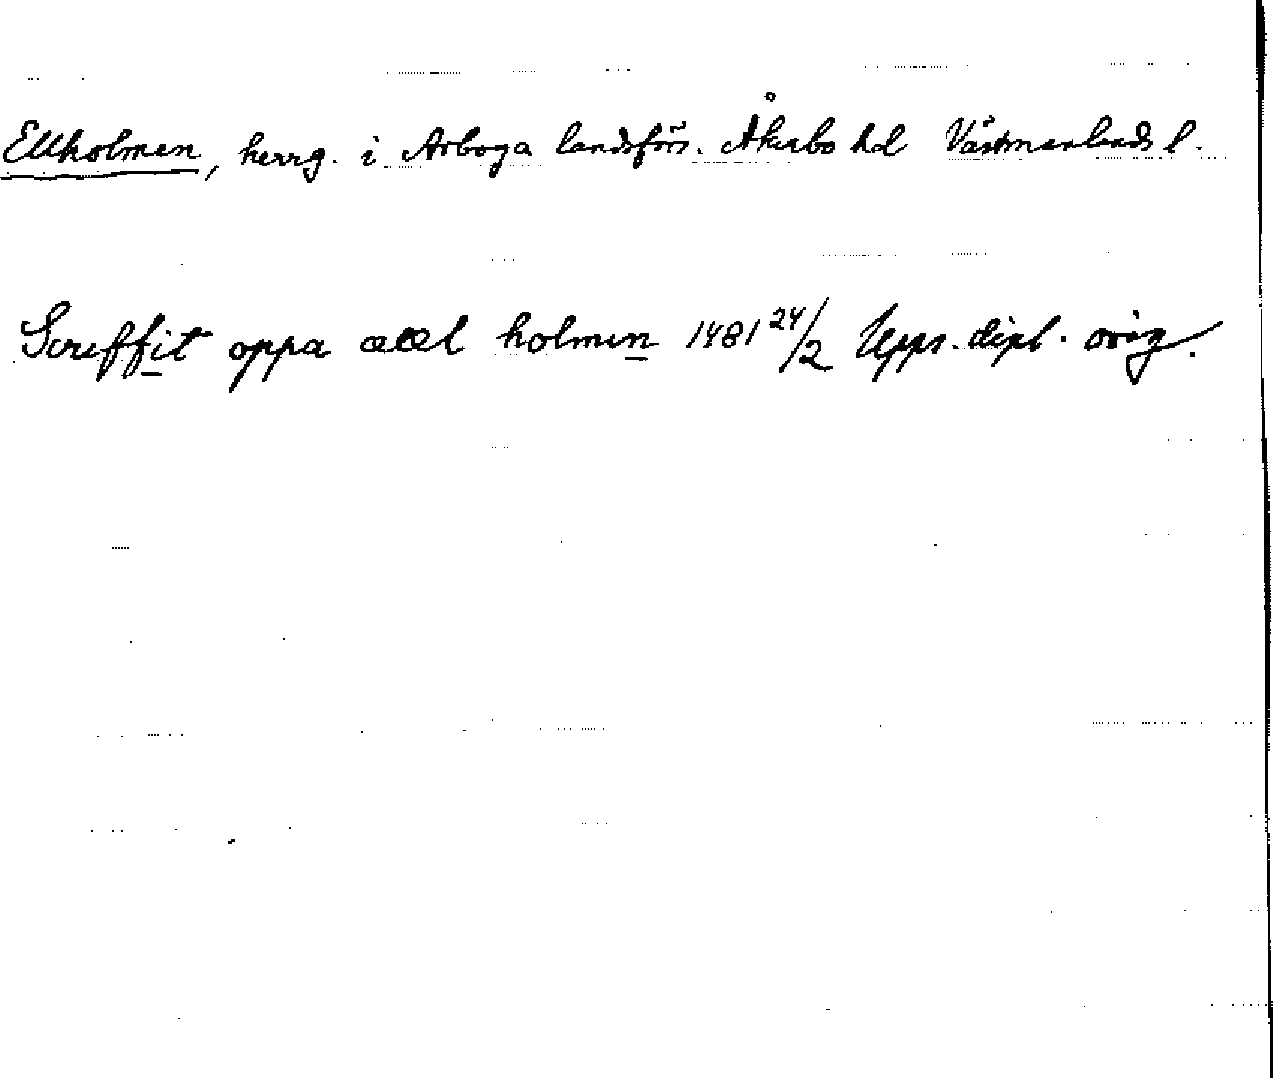 Ellholmen, herrg. i Arboga landsförs. Åkerbo hd Västmanlands l.
Screffit oppa ææl holmen 1481 24/2 Upps. dipl. orig.